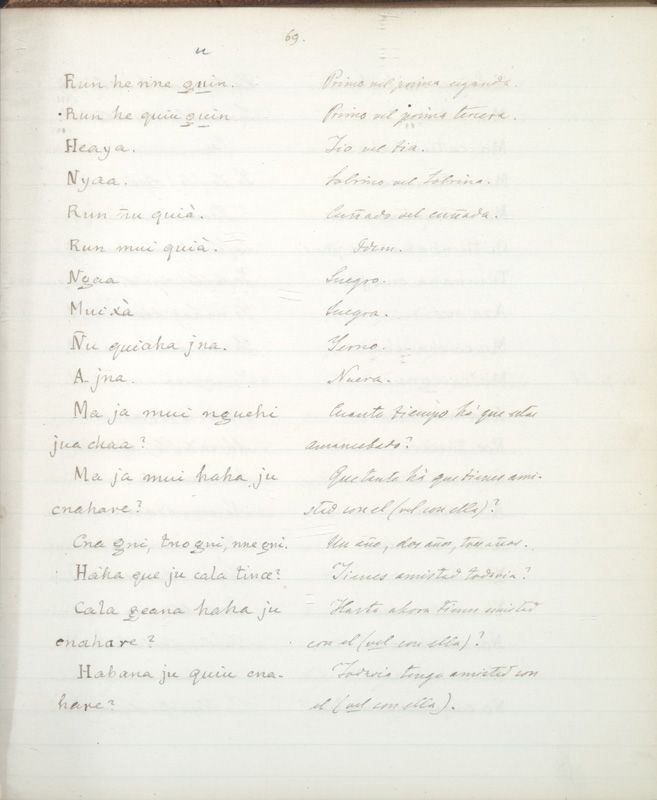 69.
u
Run he nne guin. Primo vel prima segunda.
Run he quiu guin Primo vel prima tercera.
Heaya. Tio vel tia.
Nyaa. Sobrino vel Sobrina.
Run ñu quià. Cuñado vel cuñada.
Run mui quià. Idem.
Ngaa Suegro.
Mui xà Suegra.
Ñu quiaha jna. Yerno.
A jna. Nuera.
Ma ja mui nguehi Cuanto tiempo há que estas
jua chaa? amancebado?
Ma ja mui haha ju Que tanto há que tienes ami-
cnahare? stad con el (vel con ella)?
Cna gni, tno gni, nne gni. Un año, dos años, tres años.
Haha que ju cala tince? Tienes amistad todavia?
Cala geana haha ju Hasta ahora tienes amistad
cnahare? con el (vel con ella)?
Habana ju quiu cna- Todavia tengo amistad con
hare? el (vel con ella).